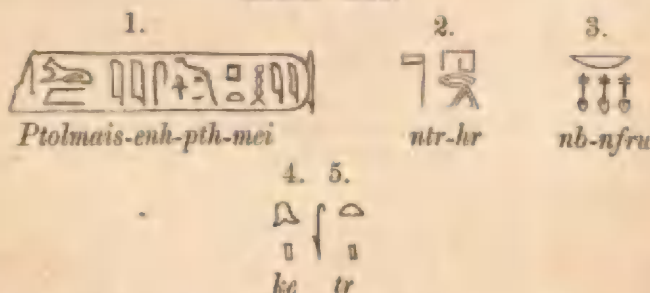 1. 2. 3.
Ptolmais-enh-pth-mei ntr-hr nb-nfru
4. 5.
ke tr